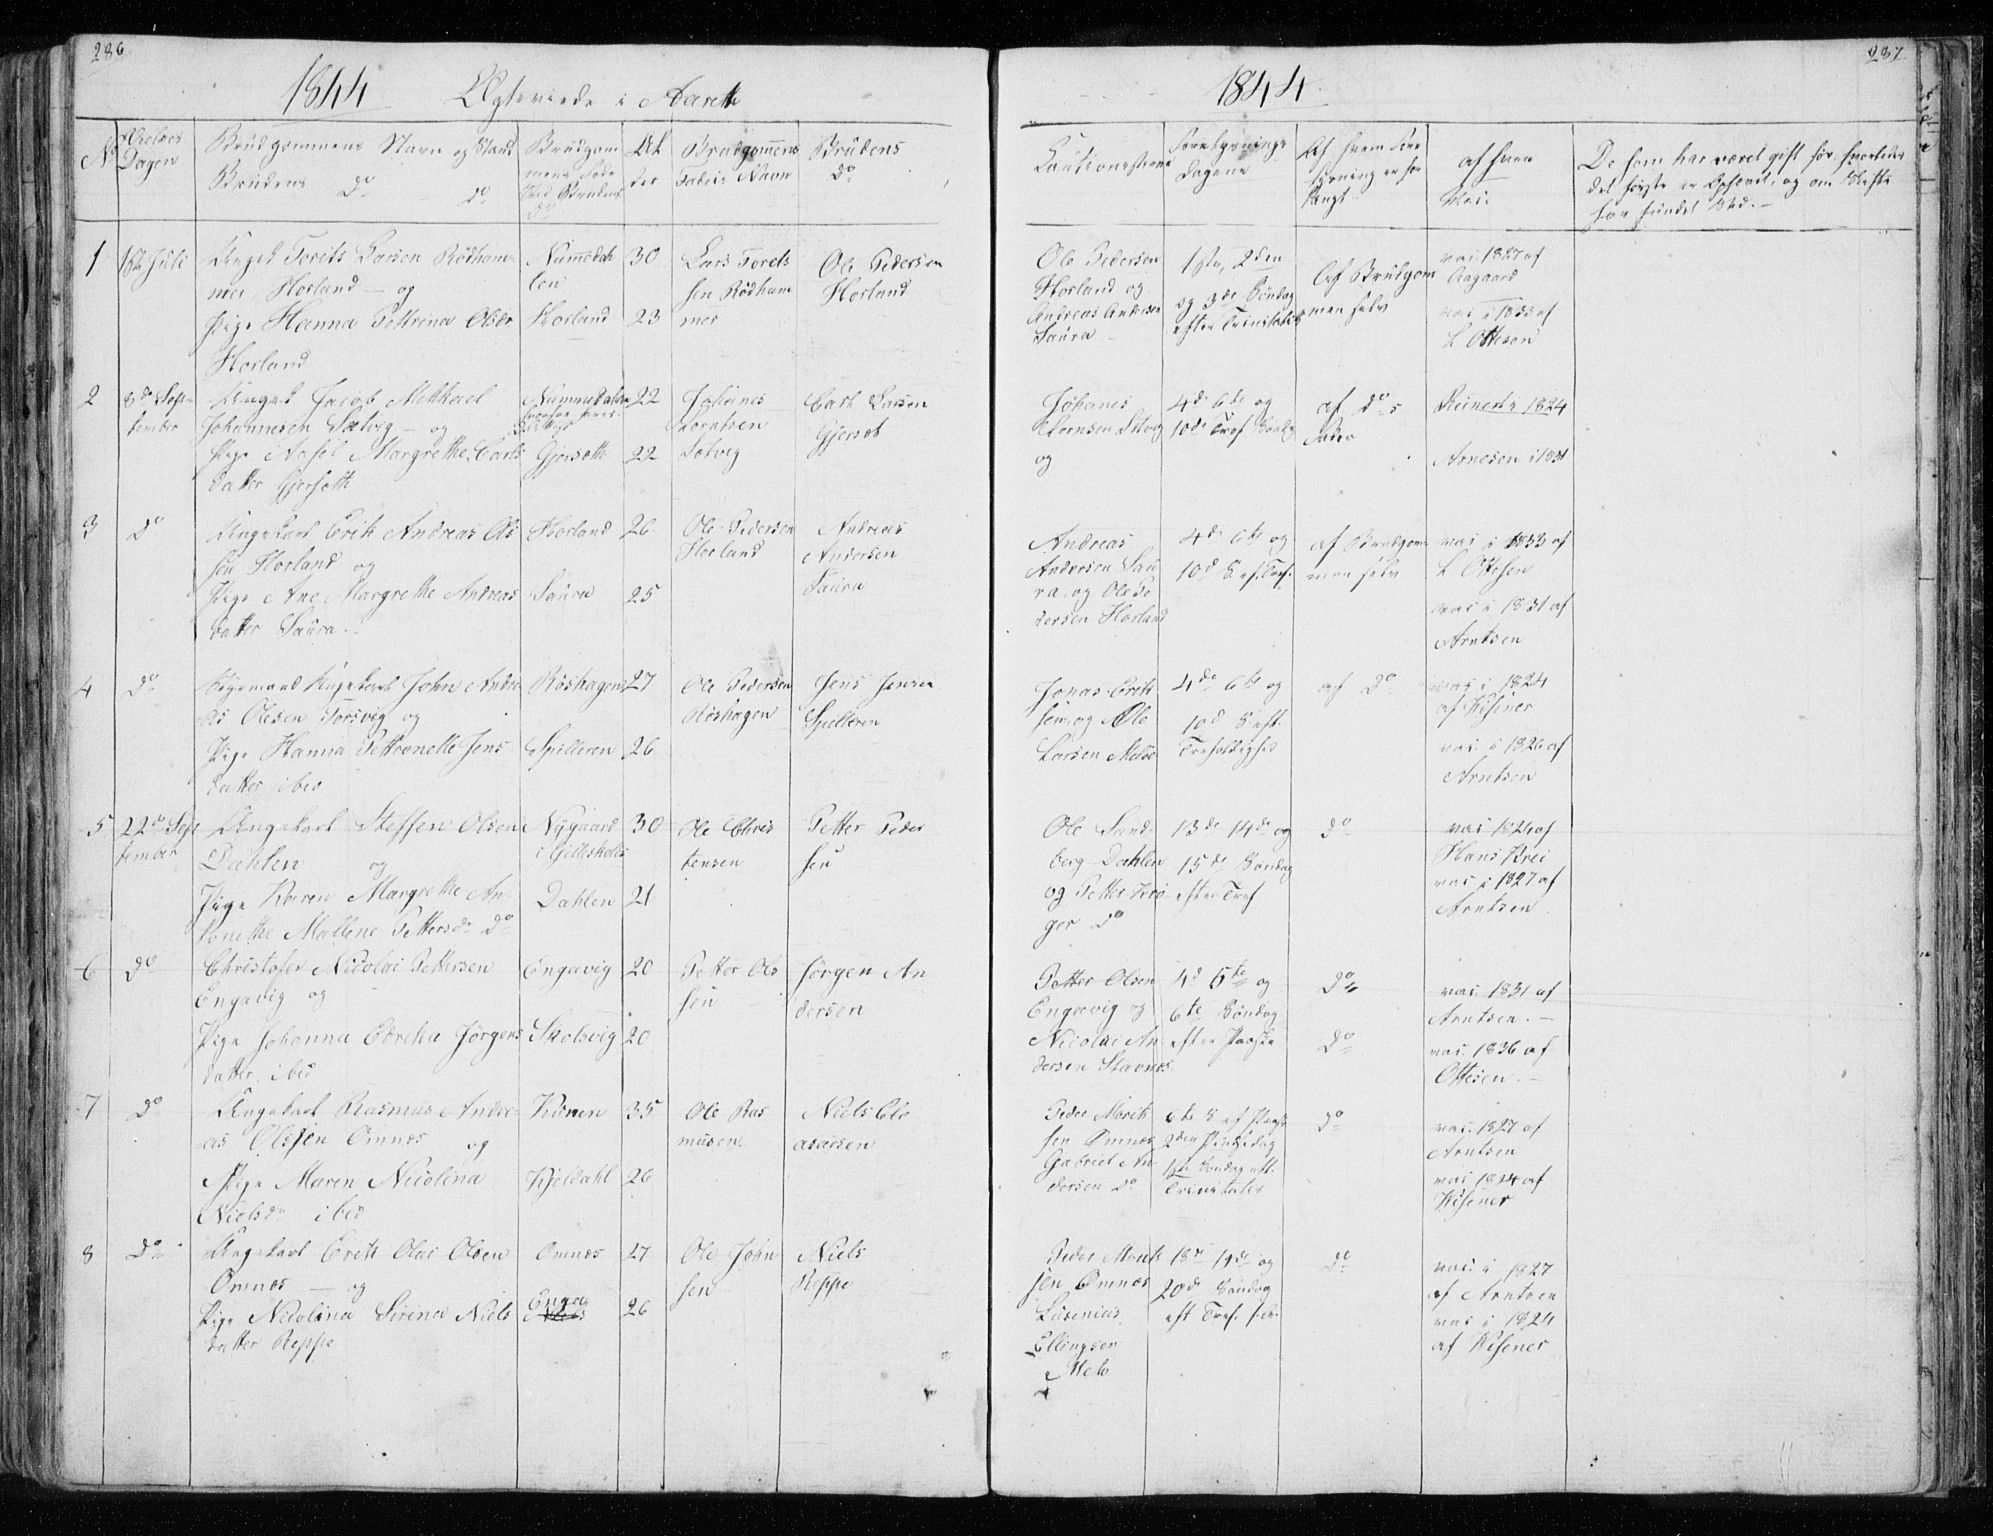 286
1844 Ægteviede i Aaret
No Vielses Dagen
Brudgommens Navn og Stand
Brudens Do Do
Brudgommens Føde Sted Brudens Do
Alder
Brudgommens Faders Navn
Brudens Do
1
Ungk Torits Larsen Rødham-
mer, Horland og
Pige Hanna Pettrina Olsdr
Horland
Nummedahlen
Horland
30
23
Lars Torets
sen Rødham
mer
Ole Pedersen
Horland
2
8de September
Ungk Jacob Mikkael
Johannesen Sætvig og
Pige Margrethe Carls
datter Gjersette
Nummedalen
Gjersette
22
22
Johanes
Sætvig
Carl Larsen
Gjerset
3
Do
Ungekarl Erik Andreas Ols
sen Horland og
Pige Ane Margrethe Andreas
datter Saura
Horland
Saura
26
25
Ole Pedersen
Horland
Andreas
Andersen
Saura
4
Do
Ungekarl John Andre
as Olesen Torsvig og
Pige Hanna Pettronelle Jens
datter ibid
Røshagen
Spilderen
27
26
Ole Pedersen
Røshagen
Jens Jensen
Spilderen
5
22de September
Ungekarl Steffen Olsen
Dahlen og
Pige Karen Margrethe An-
tonette Mallene Petters Do
Nygaard
i Gilleskaal
Dahlen
30
21
Ole Chris
tensen
Petter Peder
sen
6
Do
Christofer Nicolai Pettersen
Engavig og
Pige Johanna Edreka Jørgens
datter ibid
Engavig
Skolsvig
20
20
Petter Ols
sen
Jørgen An
dersen
7
Do
Ungekarl Rasmus Andre-
as Olssen Omnes og
Pige Maren Nicolina
Nielsd ibid
Kjeldahl
35
26
Ole Ras
musen
Niels
8
Do
Ungekarl Erik Olai Olsen
Omnes og
Pige Nicolina Sirena Niels
datter Reppe
Omnes
Enga
27
26
Ole John
sen
Niels
Reppe
287
1844
Cautionisterne
Forelysnings Dagene
Af hvem Forlysning er forlangt
af hvem Vac.
De som har været gift før, hvorledes
det første er Ophævet, og om Skifte
har fundet Sted.
Ole Pedersen
Horland og
Andreas Andersen
Saura
1ste, 2den
og 3die Søndag
efter Trinitatis
Af Brudgom
men selv
vac 1827 af
Aagaard
vac i 1833 af
L Ottesen
Johanes
og
4de 6te og
10de Tref Søndag
af Do s
Fader
1824
Arnesen i 1831
Andreas
Andersen Sau
ra, og Ole Pe
dersen Horland
4de 6te og
10d S. ef. Tref.
af Brudgom
men selv
vac i 1833 af
L Ottesen
vac i 1831 af
Arntsen
Jonas Erik
sen og Ole
Larsen Meløe
4de 6te og
10d S eft
Trefoldighed
af Do
vac i 1824
af Kisener
vac. i 1826 af
Arntsen
Ole Sand-
berg Dahlen
og Petter Krø
ger Do
13de 14de og
15de Søndag
efter Tref
Do
vac 1826 af
Hans Krei
vac i 1827 af
Arntsen
Petter Olsen
Engavig og
Nicolai An
dersen Stavnes
4d 5te og
6te Søndag
efter Paaske
Do
Do
vac. 1831 af
Arntsen.
vac. 1836 af
Ottesen.
Peder Morits
sen Omnes
Gabriel An
dersen Do
6te S ef Paask
2den Pintsedag
1ste Søndag eft.
Trinitatis
Do
vac. 1827 af
Arntsen
vac 1824 af
Kisener
Peder Morits
sen Omnes
Ellingsen
Melø
18de 19de og
20de Søndag
eft Tref.
Do
vac. i 1827
af Arntsen
vac i 1824
af Kisener